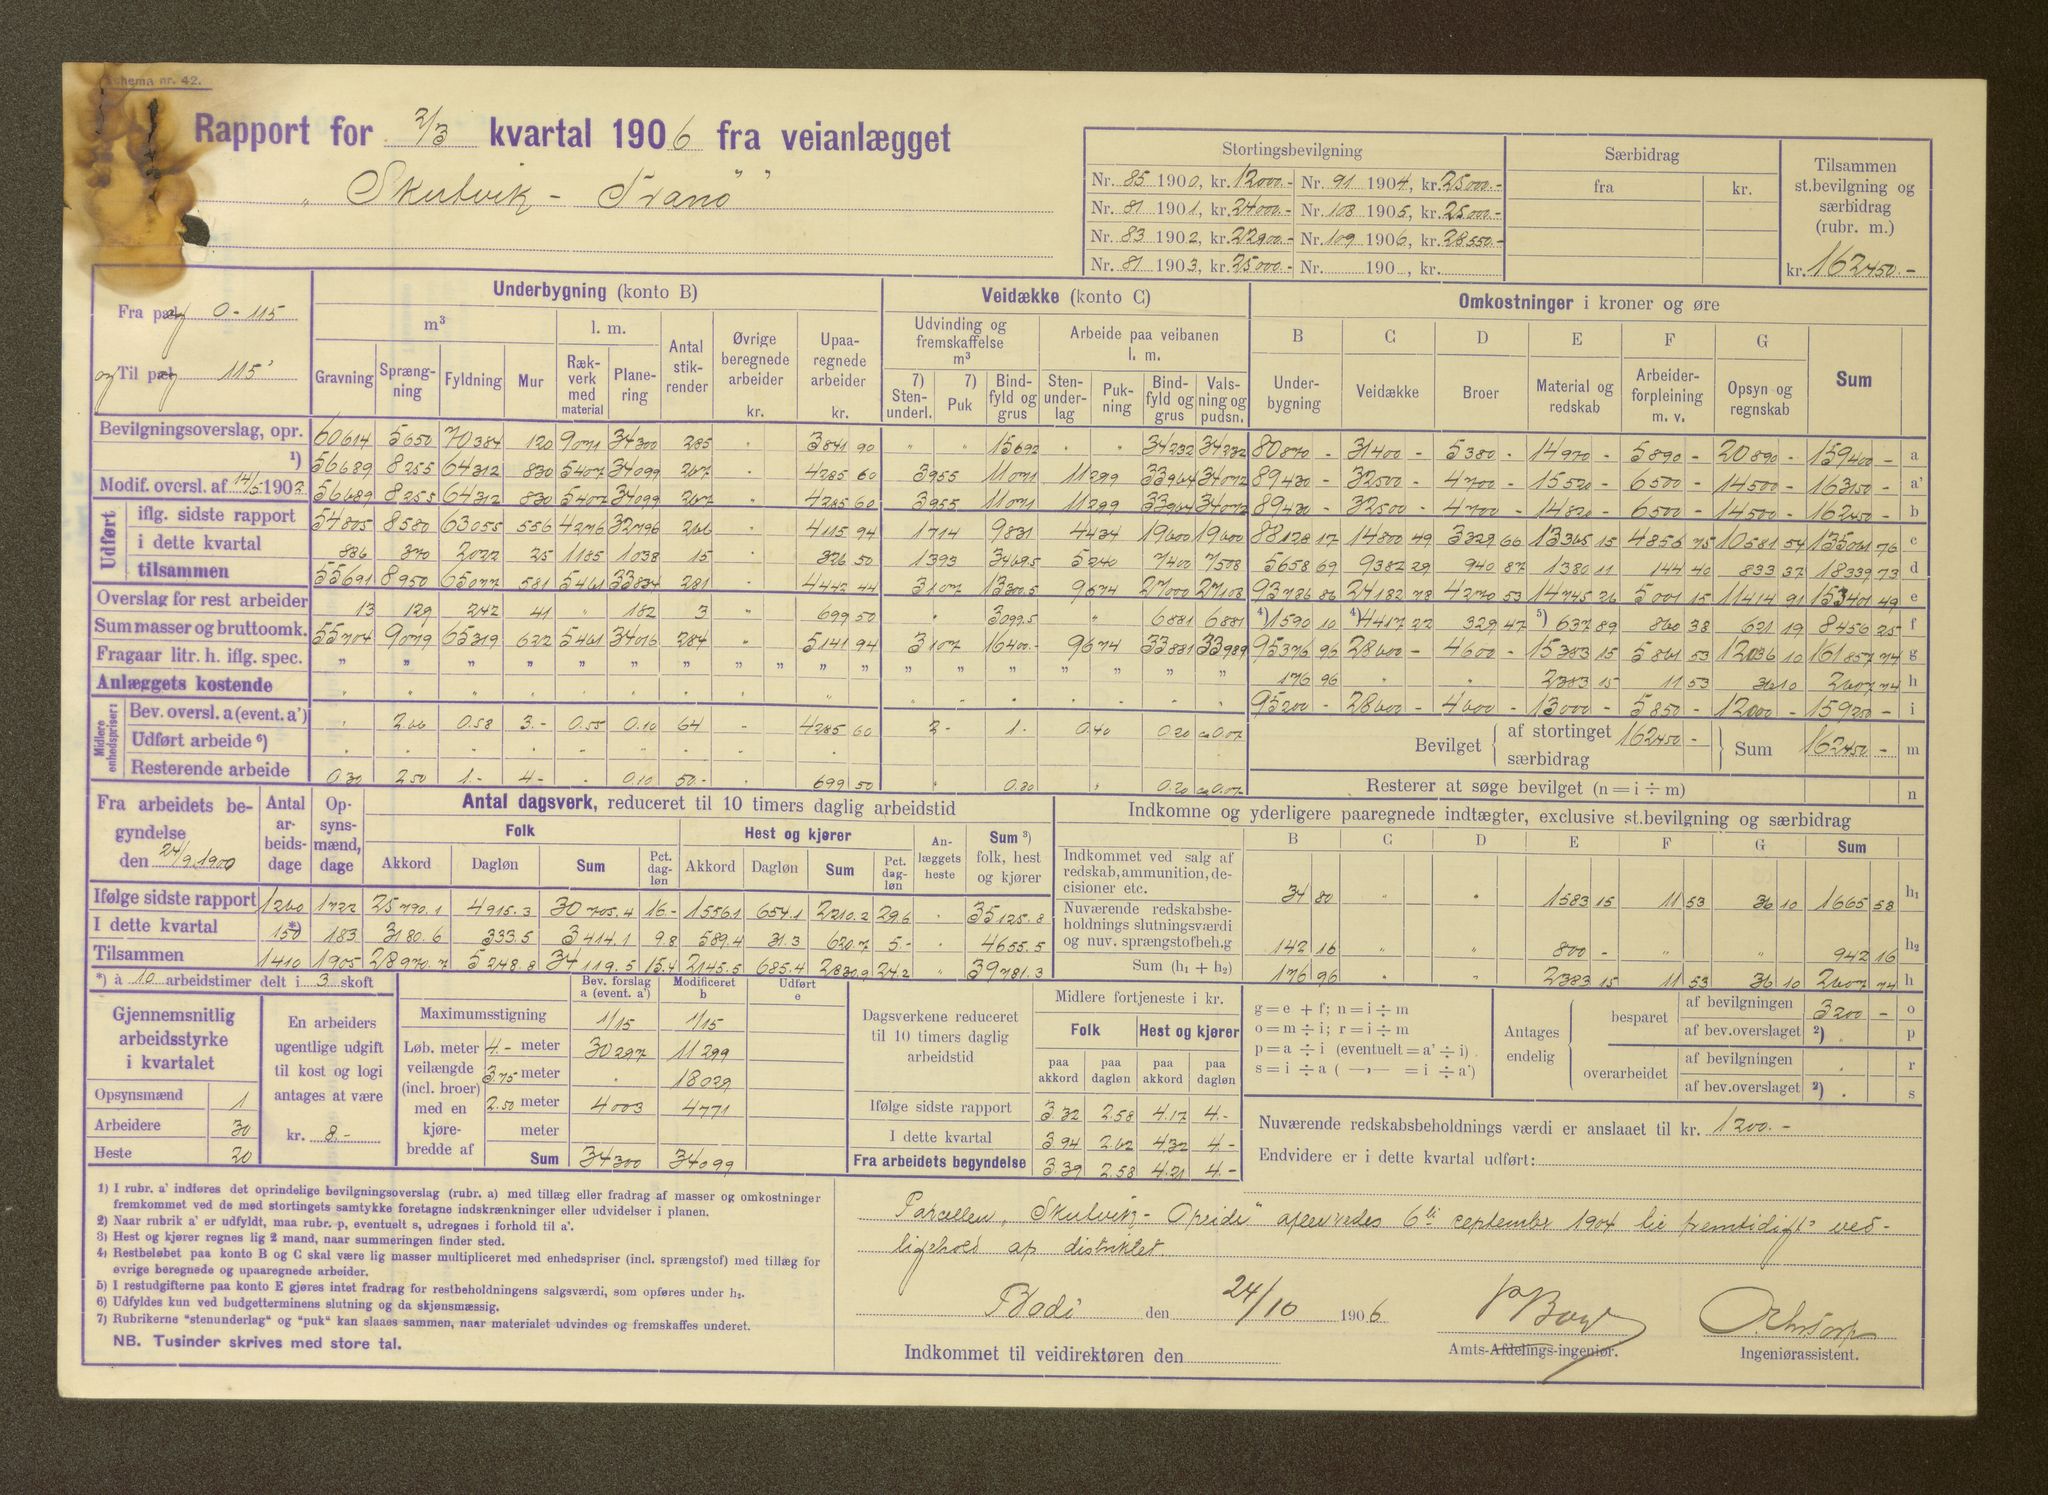 Schema nr. 42.
Rapport for 2/3 kvartal 1906 fra veianlægget
„Skutvik – Tranö"
Stortingsbevilgning
Nr. 85 1900, kr. 12000.- Nr. 91 1904, kr. 25000.-
Nr. 81 1901, kr. 24000.- Nr. 108 1905, kr. 25000.-
Nr. 83 1902, kr. 22900.- Nr. 109 1906, kr. 28550.-
Nr. 81 1903, kr. 25000.- Nr. 190 , kr.
Særbidrag
fra kr.
Tilsammen
st.bevilgning og
særbidrag
(rubr. m.)
kr. 162450.-
Fra pæl 0 - 115
og Til pæl 115'
Underbygning (konto B)
m³ l. m.
Gravning Sprængning Fyldning Mur
Rækverk med material Planering
Antal stikrender
Øvrige beregnede arbeider kr.
Upaaregnede arbeider kr.
Veidække (konto C)
Udvinding og fremskaffelse m³
7) Stenunderl. 7) Puk Bindfyld og grus
Arbeide paa veibanen l. m.
Stenunderlag Pukning Bindfyld og grus Valsning og pudsn.
Omkostninger i kroner og øre
B C D E F G
Underbygning Veidække Broer Material og redskab Arbeiderforpleining m. v. Opsyn og regnskab Sum
Bevilgningsoverslag, opr. 60614 5650 70384 120 9071 34300 285 " 3841 90 " " 15692 " " 34232 34232 80870 - 31400 - 5380 - 14970 - 5890 - 20890 - 159400 - a
1) 56689 8255 64312 830 5407 34099 267 " 4285 60 3955 11071 11299 33964 34072 89430 - 32500 - 4700 - 15520 - 6500 - 14500 - 163150 - a'
Modif. oversl. af 14/5 1902 56689 8255 64312 830 5407 34099 267 " 4285 60 3955 11071 11299 33964 34072 89430 - 32500 - 4700 - 14820 - 6500 - 14500 - 162450 - b
Udført
iflg. sidste rapport 54805 8580 63055 556 4276 32796 266 4115 94 1714 9831 4434 19600 19600 88128 17 14800 49 3329 66 13365 15 4856 75 10581 54 135061 76 c
i dette kvartal 886 370 2022 25 1185 1038 15 326 50 1393 3469.5 5240 7400 7508 5658 69 9382 29 940 87 1380 11 144 40 833 37 18339 73 d
tilsammen 55691 8950 65077 581 5461 33834 281 4442 44 3107 13300.5 9674 27000 27108 93786 86 24182 78 4270 53 14745 26 5001 15 11414 91 153401 49 e
Overslag for rest arbeider 13 129 242 41 " 182 3 " 699 50 " 3099.5 " 6881 6881 4) 1590 10 4) 4417 22 329 47 5) 637 89 860 38 621 19 8456 25 f
Sum masser og bruttoomk. 55704 9079 65319 622 5461 34016 284 " 5141 94 3107 16400.- 9674 33881 33989 95376 96 28600 - 4600 - 15383 15 5861 53 12036 10 161857 74 g
Fragaar litr. h. iflg. spec. " " " " " " " " " " " " " " " " 176 96 " " 2383 15 11 53 36 10 2607 74 h
Anlæggets kostende 95200 - 28600 - 4600 - 13000 - 5850 - 12000 - 159250 - i
Midlere enhedspriser:
Bev. oversl. a (event. a') " 2.66 0.58 3.- 0.55 0.10 64 - 4285 60 2- 1- 0.40 0.20 ca 0.07
Udført arbeide 6)
Resterende arbeide 0.30 2.50 1.- 4- " 0.10 50.- " 699 50 " 0.80 " 0.20 ca 0.07
Bevilget af stortinget 162450 - særbidrag Sum 162450 - m
Resterer at søge bevilget (n = i ÷ m) n
Fra arbeidets begyndelse
den 24/9 1900
Antal arbeidsdage
Opsynsmænd, dage
Antal dagsverk, reduceret til 10 timers daglig arbeidstid
Folk Hest og kjører
Akkord Dagløn Sum Pct. dagløn Akkord Dagløn Sum Pct. dagløn
Anlæggets heste
Sum 3) folk, hest og kjører
Ifølge sidste rapport 1260 1722 25790.1 4915.3 30705.4 16.- 1556.1 654.1 2210.2 29.6 " 35125.8
I dette kvartal 150*) 183 3180.6 333.5 3414.1 9.8 589.4 31.3 620.7 5.- " 4655.5
Tilsammen 1410 1905 28970.7 5248.8 34119.5 15.4 2145.5 685.4 2830.9 24.2 " 39781.3
*) à 10 arbeidstimer delt i 3 skoft
Indkomne og yderligere paaregnede indtægter, exclusive st.bevilgning og særbidrag
B C D E F G Sum
Indkommet ved salg af redskab, ammunition, decisioner etc. 34 80 " " 1583 15 11 53 36 10 1665 58 h₁
Nuværende redskabsbeholdnings slutningsværdi og nuv. sprængstofbeh.g 142 16 " " 800 - " " 942 16 h₂
Sum (h₁ + h₂) 176 96 " " 2383 15 11 53 36 10 2607 74 h
Gjennemsnitlig arbeidsstyrke i kvartalet
Opsynsmænd 1
Arbeidere 30
Heste 20
En arbeiders ugentlige udgift til kost og logi antages at være
kr. 8.-
Bev. forslag a (event. a') Modificeret b Udført e
Maximumsstigning 1/15 1/15
Løb. meter veilængde (incl. broer) med en kjørebredde af
4.- meter 30297 11299
3.75 meter " 18029
2.50 meter 4003 4771
meter
Sum 34300 34099
Dagsverkene reduceret til 10 timers daglig arbeidstid
Midlere fortjeneste i kr.
Folk Hest og kjører
paa akkord paa dagløn paa akkord paa dagløn
Ifølge sidste rapport 3.32 2.58 4.17 4.-
I dette kvartal 3.94 2.62 4.32 4.-
Fra arbeidets begyndelse 3.39 2.58 4.21 4.-
g = e + f; n = i ÷ m
o = m ÷ i; r = i ÷ m
p = a ÷ i (eventuelt = a' ÷ i)
s = i ÷ a ( —„— = i ÷ a')
Antages endelig
besparet af bevilgningen 3200 - o
af bev.overslaget 2) " p
overarbeidet af bevilgningen " r
af bev.overslaget 2) " s
Nuværende redskabsbeholdnings værdi er anslaaet til kr. 1200.-
Endvidere er i dette kvartal udført:
Parcellen „Skutvik – Opeide" afleveredes 6te september 1904 til fremtidigt ved-
ligehold af distriktet.
Bodö den 24/10 1906
Amts-Afdelings-ingeniør. Ingeniørassistent.
Indkommet til veidirektøren den
1) I rubr. a' indføres det oprindelige bevilgningsoverslag (rubr. a) med tillæg eller fradrag af masser og omkostninger
fremkommet ved de med stortingets samtykke foretagne indskrænkninger eller udvidelser i planen.
2) Naar rubrik a' er udfyldt, maa rubr. p, eventuelt s, udregnes i forhold til a'.
3) Hest og kjører regnes lig 2 mand, naar summeringen finder sted.
4) Restbeløbet paa konto B og C skal være lig masser multipliceret med enhedspriser (incl. sprængstof) med tillæg for
øvrige beregnede og upaaregnede arbeider.
5) I restudgifterne paa konto E gjøres intet fradrag for restbeholdningens salgsværdi, som opføres under h₂.
6) Udfyldes kun ved budgetterminens slutning og da skjønsmæssig.
7) Rubrikerne "stenunderlag" og "puk" kan slaaes sammen, naar materialet udvindes og fremskaffes underet.
NB. Tusinder skrives med store tal.